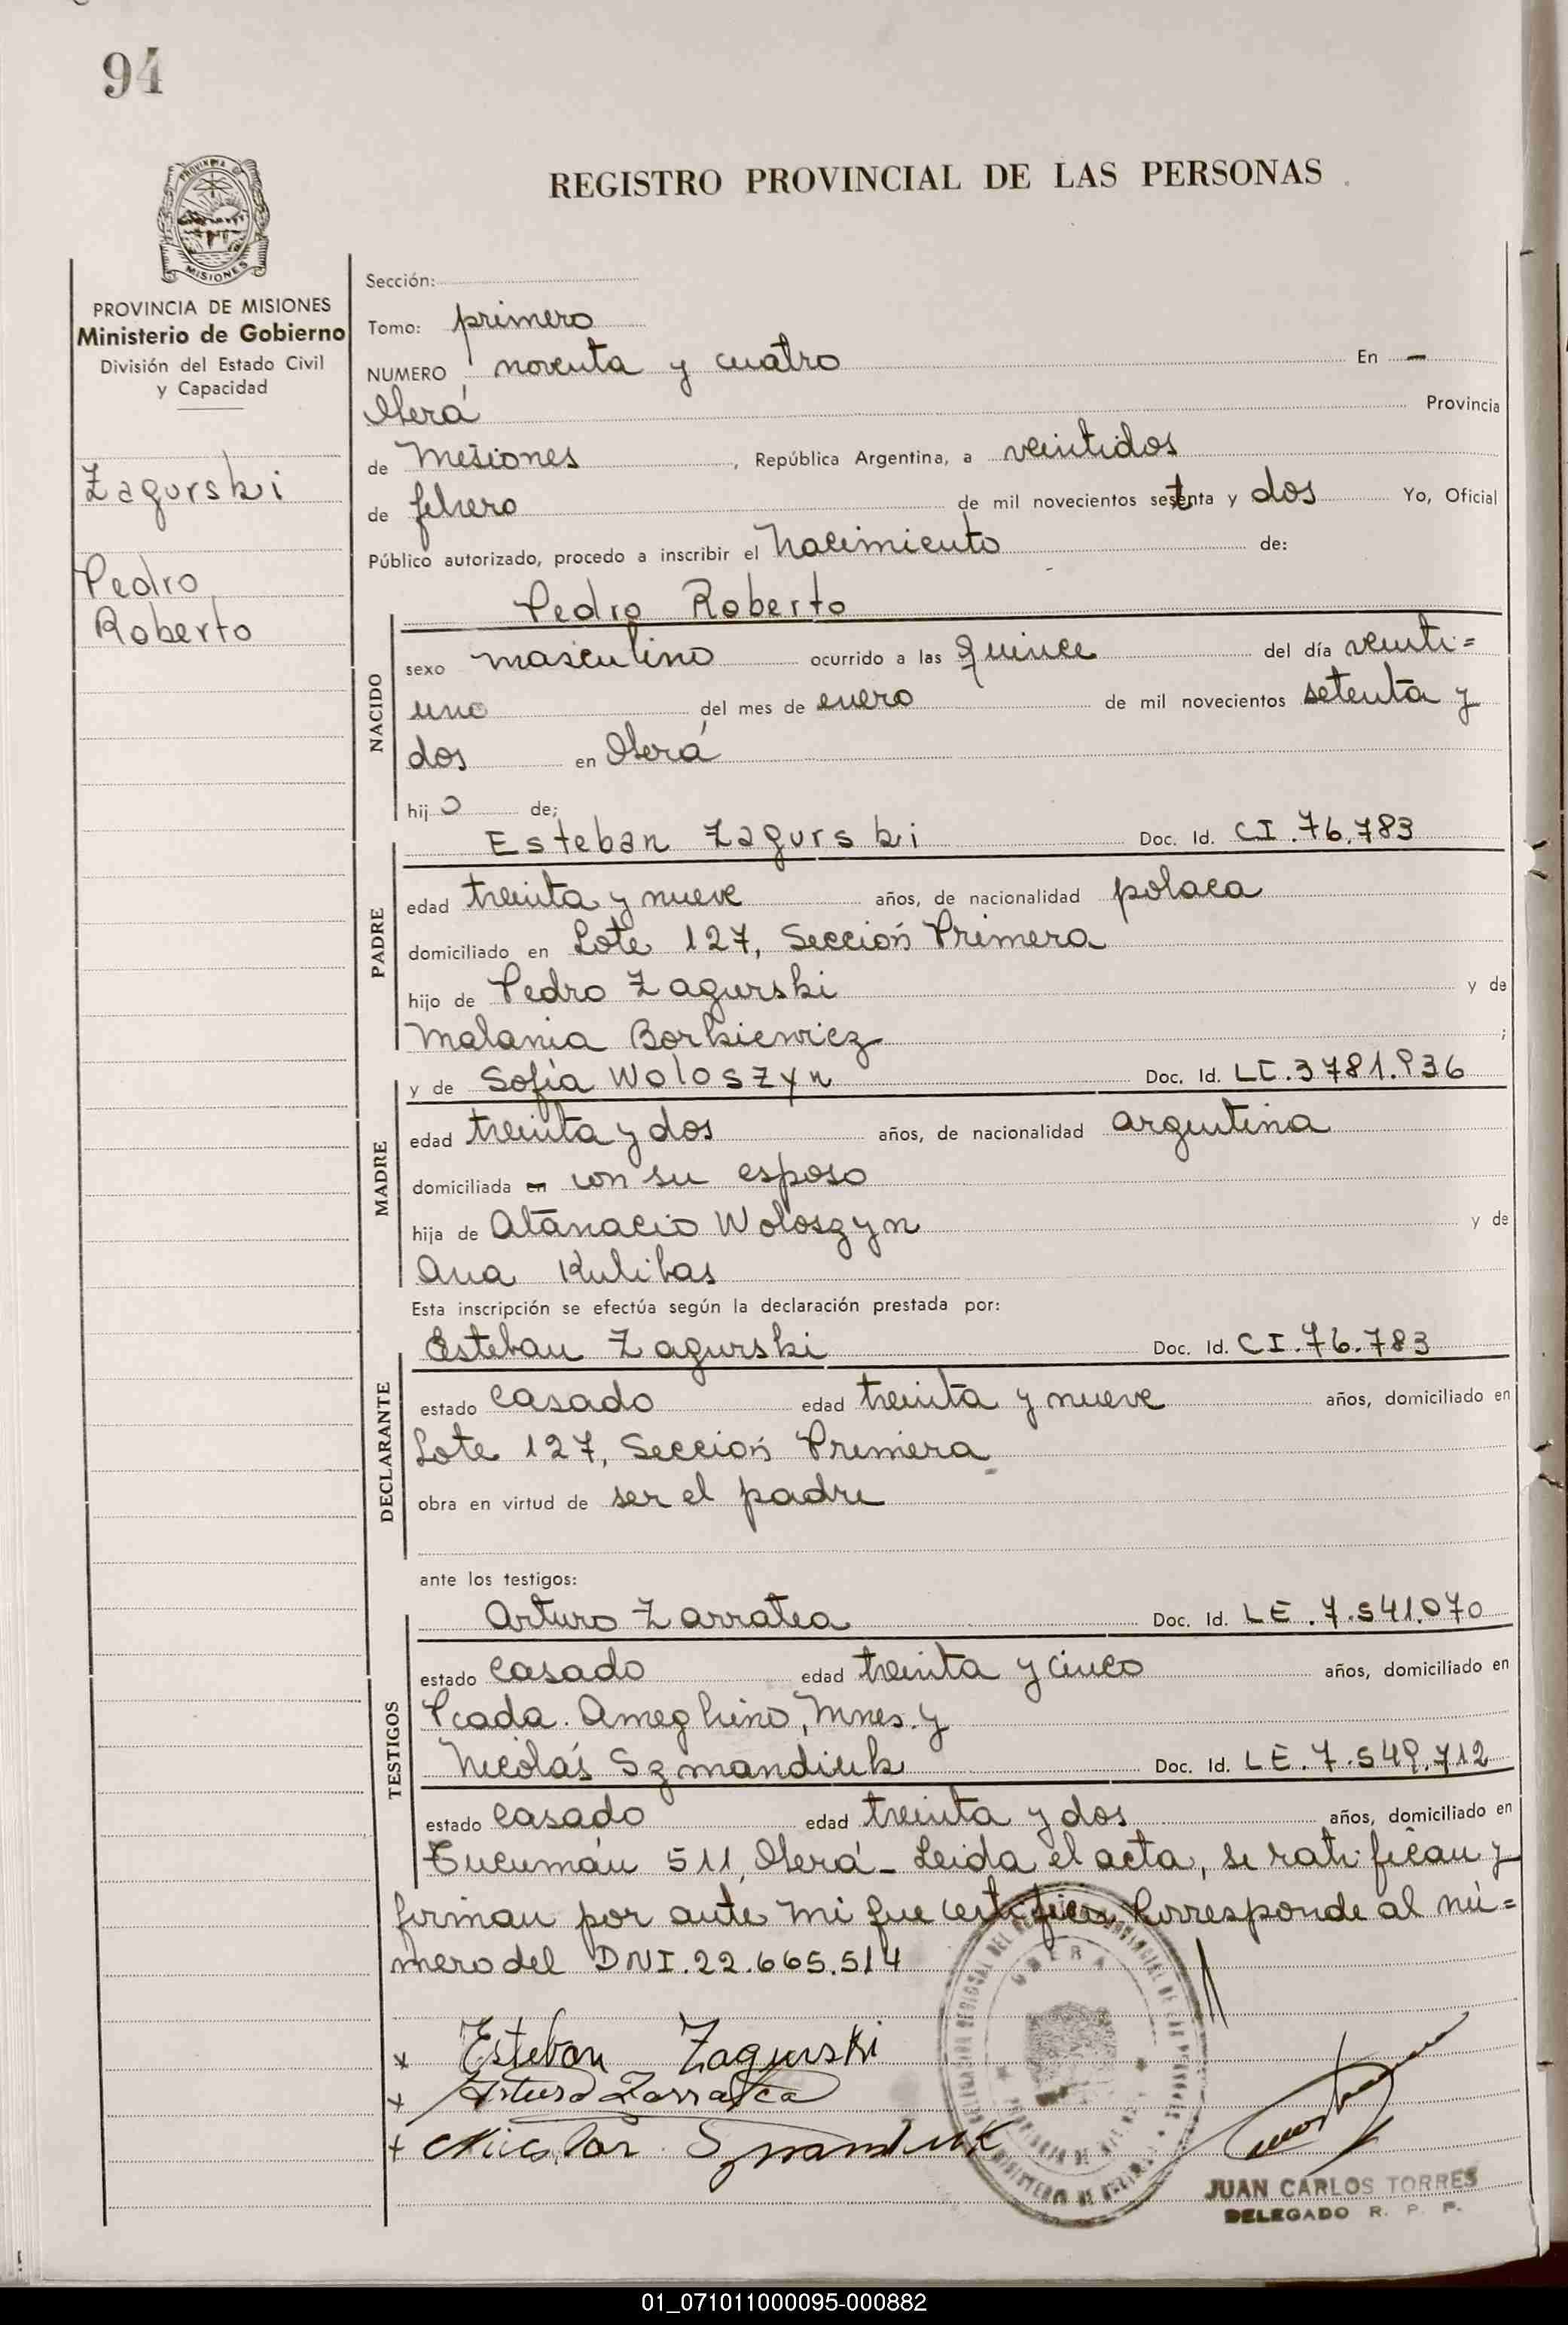 94
PROVINCIA DE
MISIONES
REGISTRO PROVINCIAL DE LAS PERSONAS
PROVINCIA DE MISIONES
Ministerio de Gobierno
División del Estado Civil
y Capacidad
Zagurski
Pedro
Roberto
Sección:
Tomo: primero
NUMERO noventa y cuatro En -
Oberá Provincia
de Misiones, República Argentina, a veintidos
de febrero de mil novecientos setenta y dos Yo, Oficial
Público autorizado, procedo a inscribir el Nacimiento de:
Pedro Roberto
NACIDO
sexo masculino ocurrido a las quince del día veinti=
uno del mes de enero de mil novecientos setenta y
dos en Oberá
hijo de;
PADRE
Esteban Zagurski Doc. Id. CI.76.783
edad treinta y nueve años, de nacionalidad polaca
domiciliado en Lote 127, Sección Primera
hijo de Pedro Zagurski y de
Malania Borkiewicz ;
MADRE
y de Sofía Woloszyn Doc. Id. LC.3781.936
edad treinta y dos años, de nacionalidad argentina
domiciliada en con su esposo
hija de Atanacio Woloszyn y de
Ana Kulibas
Esta inscripción se efectúa según la declaración prestada por:
DECLARANTE
Esteban Zagurski Doc. Id. CI.76.783
estado casado edad treinta y nueve años, domiciliado en
Lote 127, Sección Primera
obra en virtud de ser el padre
ante los testigos:
TESTIGOS
Arturo Zarratea Doc. Id. LE.7.541.070
estado casado edad treinta y cinco años, domiciliado en
Pcada. Ameghino, Mnes. y
Nicolás Szmandiuk Doc. Id. LE.7.549.712
estado casado edad treinta y dos años, domiciliado en
Tucumán 511, Oberá_ Leida el acta, se ratifican y
firman por ante mi que certifico. Corresponde al nú=
mero del DNI.22.665.514
x Esteban Zagurski
x Arturo Zarratea
x Nicolas Szmandiuk
OBERA
JUAN CARLOS TORRES
DELEGADO R. P. P.
01_071011000095-000882